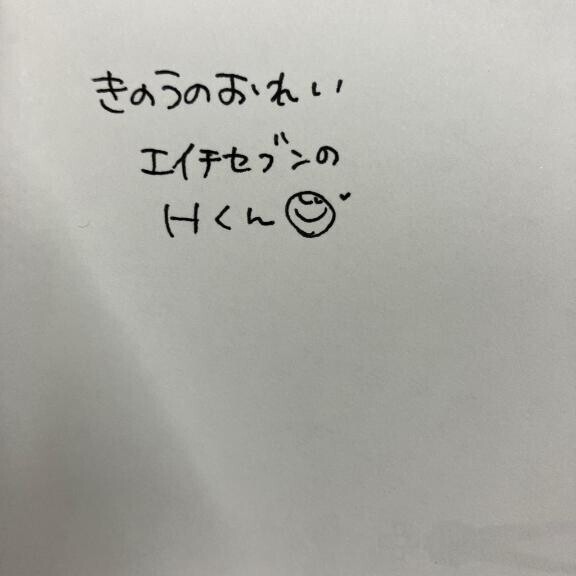 きのうのおれい
エイチセブンの
Hくん